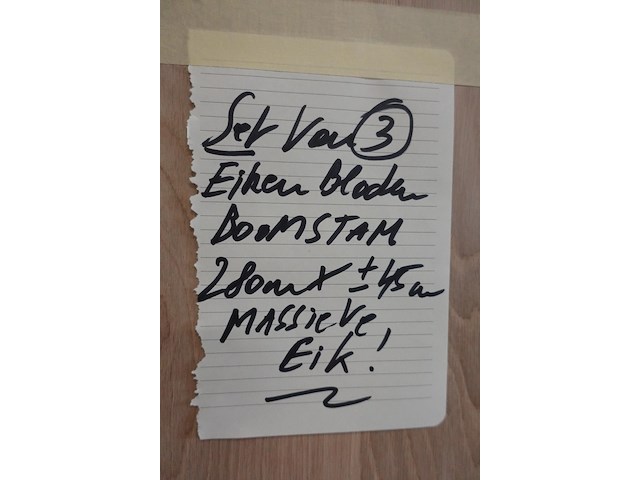 Set van 3
Eiken Bladen
BOOMSTAM
280cm X ± 45cm
MASSIEVE
Eik!